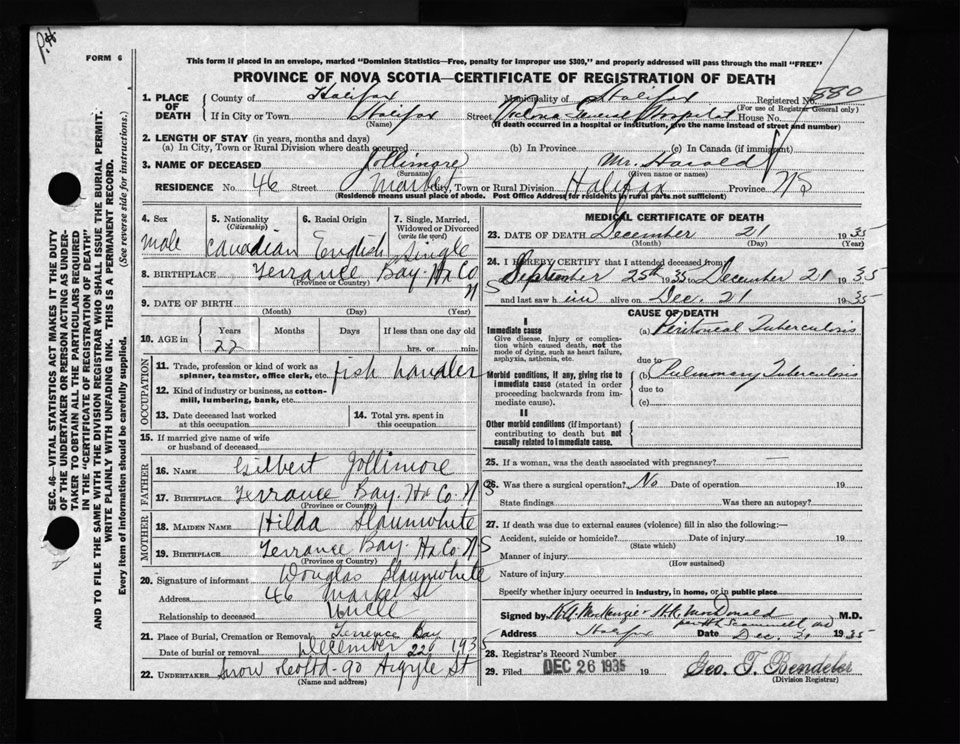 P.H.
FORM 6
This form if placed in an envelope, marked "Dominion Statistics—Free, penalty for improper use $300," and properly addressed will pass through the mail "FREE"
PROVINCE OF NOVA SCOTIA—CERTIFICATE OF REGISTRATION OF DEATH
SEC. 46—VITAL STATISTICS ACT MAKES IT THE DUTY
OF THE UNDERTAKER OR PERSON ACTING AS UNDER-
TAKER TO OBTAIN ALL THE PARTICULARS REQUIRED
IN THE "CERTIFICATE OF REGISTRATION OF DEATH"
AND TO FILE THE SAME WITH THE DIVISION REGISTRAR WHO SHALL ISSUE THE BURIAL PERMIT.
WRITE PLAINLY WITH UNFADING INK. THIS IS A PERMANENT RECORD.
Every item of information should be carefully supplied. (See reverse side for instructions.)
1. PLACE OF DEATH County of Halifax Municipality of Halifax Registered No. 880
(For use of Registrar General only)
If in City or Town Halifax Street Victoria General Hospital House No.
(Name) (If death occurred in a hospital or institution, give the name instead of street and number)
2. LENGTH OF STAY (in years, months and days)
(a) In City, Town or Rural Division where death occurred (b) In Province (c) In Canada (if immigrant)
3. NAME OF DECEASED Jollimore Mr. Harold
(Surname) (Given name or names)
RESIDENCE No. 46 Street Market City, Town or Rural Division Halifax Province NS
(Residence means usual place of abode. Post Office Address for residents in rural parts not sufficient)
4. Sex 5. Nationality (Citizenship) 6. Racial Origin 7. Single, Married, Widowed or Divorced (write the word)
male Canadian English Single
8. BIRTHPLACE Terrance Bay. Hx Co N
(Province or Country)
9. DATE OF BIRTH
(Month) (Day) (Year)
10. AGE in Years Months Days If less than one day old
22 hrs. or min.
OCCUPATION
11. Trade, profession or kind of work as spinner, teamster, office clerk, etc. fish handler
12. Kind of industry or business, as cotton-mill, lumbering, bank, etc.
13. Date deceased last worked at this occupation 14. Total yrs. spent in this occupation
15. If married give name of wife or husband of deceased
FATHER
16. NAME Gilbert Jollimore
17. BIRTHPLACE Terrance Bay. Hx Co. NS
(Province or Country)
MOTHER
18. MAIDEN NAME Hilda Slaunwhite
19. BIRTHPLACE Terrance Bay. Hx Co. NS
(Province or Country)
20. Signature of informant Douglas Slaunwhite
Address 46 Market St
Relationship to deceased Uncle
21. Place of Burial, Cremation or Removal Terrence Bay
Date of burial or removal December 22 1935
22. UNDERTAKER Snow & Co Ltd - 90 Argyle St
(Name and address)
MEDICAL CERTIFICATE OF DEATH
23. DATE OF DEATH December 21 1935
(Month) (Day) (Year)
24. I HEREBY CERTIFY that I attended deceased from
September 25th 1935 to December 21 1935
and last saw him alive on Dec. 21 1935
CAUSE OF DEATH
I
Immediate cause (a) Peritoneal Tuberculosis
Give disease, injury or complica-
tion which caused death, not the
mode of dying, such as heart failure,
asphyxia, asthenia, etc.
due to
Morbid conditions, if any, giving rise to
immediate cause (stated in order
proceeding backwards from im-
mediate cause).
(b) Pulmonary Tuberculosis
due to
(c)
II
Other morbid conditions (if important)
contributing to death but not
causally related to immediate cause.
25. If a woman, was the death associated with pregnancy? —
26. Was there a surgical operation? No Date of operation 19
State findings Was there an autopsy?
27. If death was due to external causes (violence) fill in also the following:—
Accident, suicide or homicide? Date of injury 19
(State which)
Manner of injury
(How sustained)
Nature of injury
Specify whether injury occurred in industry, in home, or in public place
Signed by H.K. MacDonald M.D.
Address Halifax Date Dec. 21 1935
28. Registrar's Record Number
29. Filed DEC 26 1935 19 Geo. T. Bendelor
(Division Registrar)